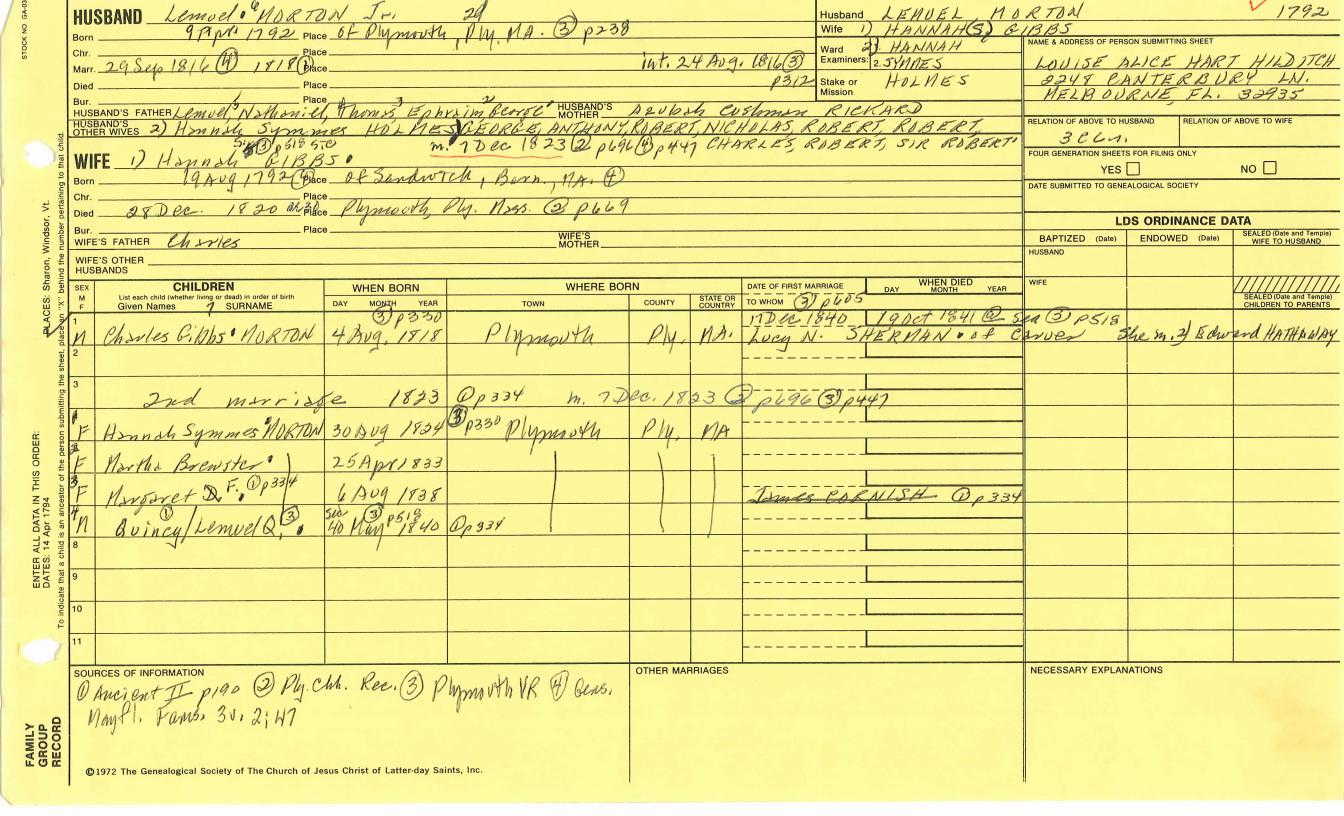 STOCK NO. GA-03
HUSBAND Lemuel 6 MORTON Jr. 29
Born 9 Apr. 1792 Place of Plymouth, Ply. MA. ③ p238
Chr. Place
Marr. 29 Sep 1816 ④ 1818 ① Place int. 24 Aug. 1816 ③ p312
Died Place
Bur. Place
HUSBAND'S FATHER Lemuel, Nathaniel, Thomas, Ephraim, George HUSBAND'S MOTHER Azubah Cushman RICKARD
HUSBAND'S OTHER WIVES 2) Hannah Symmes HOLMES) GEORGE, ANTHONY, ROBERT, NICHOLAS, ROBERT, ROBERT,
m. 7 Dec 1823 ② p696 ③ p447 CHARLES, ROBERT, SIR ROBERT
WIFE 1) Hannah GIBBS
Born 19 Aug 1792 ④ Place of Sandwich, Barn., MA. ④
Chr. Place
Died 28 Dec. 1820 ae 28 Place Plymouth, Ply. Mass. ② p669
Bur. Place
WIFE'S FATHER Charles WIFE'S MOTHER
WIFE'S OTHER HUSBANDS
Husband LEMUEL MORTON 1792
Wife 1) HANNAH(S) GIBBS
Ward 2) HANNAH
Examiners: 2. SYMMES
Stake or Mission HOLMES
NAME & ADDRESS OF PERSON SUBMITTING SHEET
LOUISE ALICE HART HILDITCH
2248 CANTERBURY LN.
MELBOURNE, FL. 32935
RELATION OF ABOVE TO HUSBAND RELATION OF ABOVE TO WIFE
3C6n.
FOUR GENERATION SHEETS FOR FILING ONLY
YES NO
DATE SUBMITTED TO GENEALOGICAL SOCIETY
LDS ORDINANCE DATA
BAPTIZED (Date) ENDOWED (Date) SEALED (Date and Temple) WIFE TO HUSBAND
HUSBAND
WIFE
SEALED (Date and Temple) CHILDREN TO PARENTS
SEX M F CHILDREN WHEN BORN WHERE BORN DATE OF FIRST MARRIAGE WHEN DIED
List each child (whether living or dead) in order of birth
Given Names 7 SURNAME DAY MONTH YEAR TOWN COUNTY STATE OR COUNTRY TO WHOM ③ p605 DAY MONTH YEAR
1 ③ p330 17 Dec 1840 19 Oct 1841 @ Sea ③ p518
M Charles Gibbs MORTON 4 Aug, 1818 Plymouth Ply, MA. Lucy N. SHERMAN of Carver She m. 2) Edward HATHAWAY
2
3
2nd marriage 1823 ① p334 m. 7 Dec. 1823 ② p696 ③ p447
1
F Hannah Symmes MORTON 30 Aug 1824 ③ p330 Plymouth Ply, MA
2
F Martha Brewster 25 Apr 1833
3
F Margaret D. F. ① p334 6 Aug 1838 James CORNISH ① p334
4
M Quincy ① / Lemuel Q. ③ May 1840 ③ p518 ① p334
8
9
10
11
SOURCES OF INFORMATION OTHER MARRIAGES NECESSARY EXPLANATIONS
① Ancient II p190 ② Ply. Chh. Rec. ③ Plymouth VR ④ Gens.
Mayfl. Fams. 3v. 2; 47
©1972 The Genealogical Society of The Church of Jesus Christ of Latter-day Saints, Inc.
FAMILY GROUP RECORD
ENTER ALL DATA IN THIS ORDER:
DATES: 14 Apr 1794
PLACES: Sharon, Windsor, Vt.
To indicate that a child is an ancestor of the person submitting the sheet, place an "X" behind the number pertaining to that child.